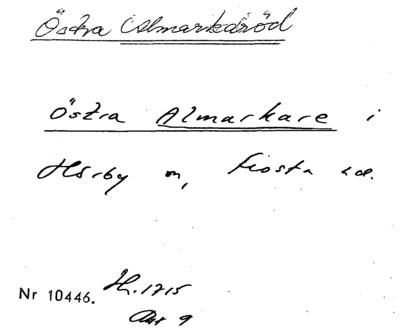 Östra Almarkaröd
Östra Almarkare i
Hörby sn, Frosta hd.
Nr 10446. H. 1715
Akt 9